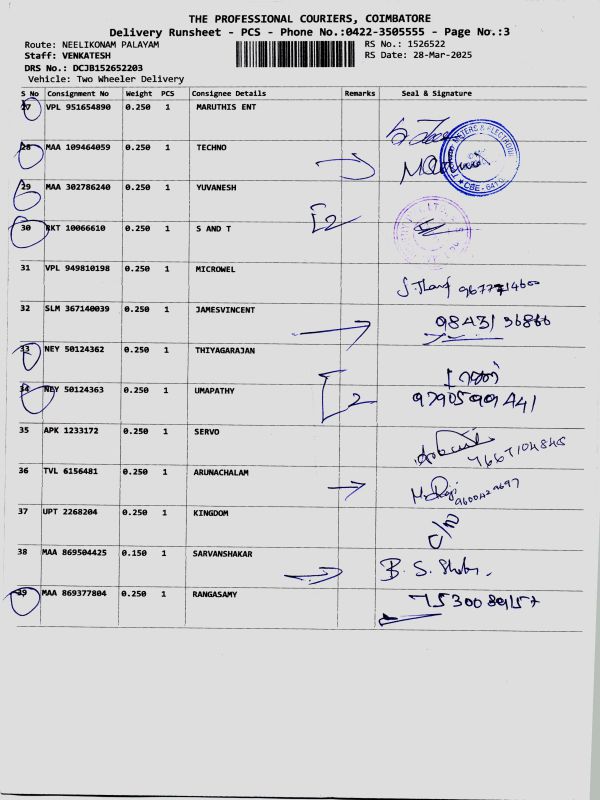 THE PROFESSIONAL COURIERS, COIMBATORE
Delivery Runsheet - PCS - Phone No.:0422-3505555 - Page No.:3
Route: NEELIKONAM PALAYAM RS No.: 1526522
Staff: VENKATESH RS Date: 28-Mar-2025
DRS No.: DCJB152652203
Vehicle: Two Wheeler Delivery
S No Consignment No Weight PCS Consignee Details Remarks Seal & Signature
27 VPL 951654890 0.250 1 MARUTHIS ENT
28 MAA 109464059 0.250 1 TECHNO
29 MAA 302786240 0.250 1 YUVANESH
30 RKT 10066610 0.250 1 S AND T [2
31 VPL 949810198 0.250 1 MICROWEL
32 SLM 367140039 0.250 1 JAMESVINCENT
98431 36866
33 NEY 50124362 0.250 1 THIYAGARAJAN
34 NEY 50124363 0.250 1 UMAPATHY [2 9790590941
35 APK 1233172 0.250 1 SERVO
7667104845
36 TVL 6156481 0.250 1 ARUNACHALAM
37 UPT 2268204 0.250 1 KINGDOM
38 MAA 869504425 0.150 1 SARVANSHAKAR
39 MAA 869377804 0.250 1 RANGASAMY 7530089157